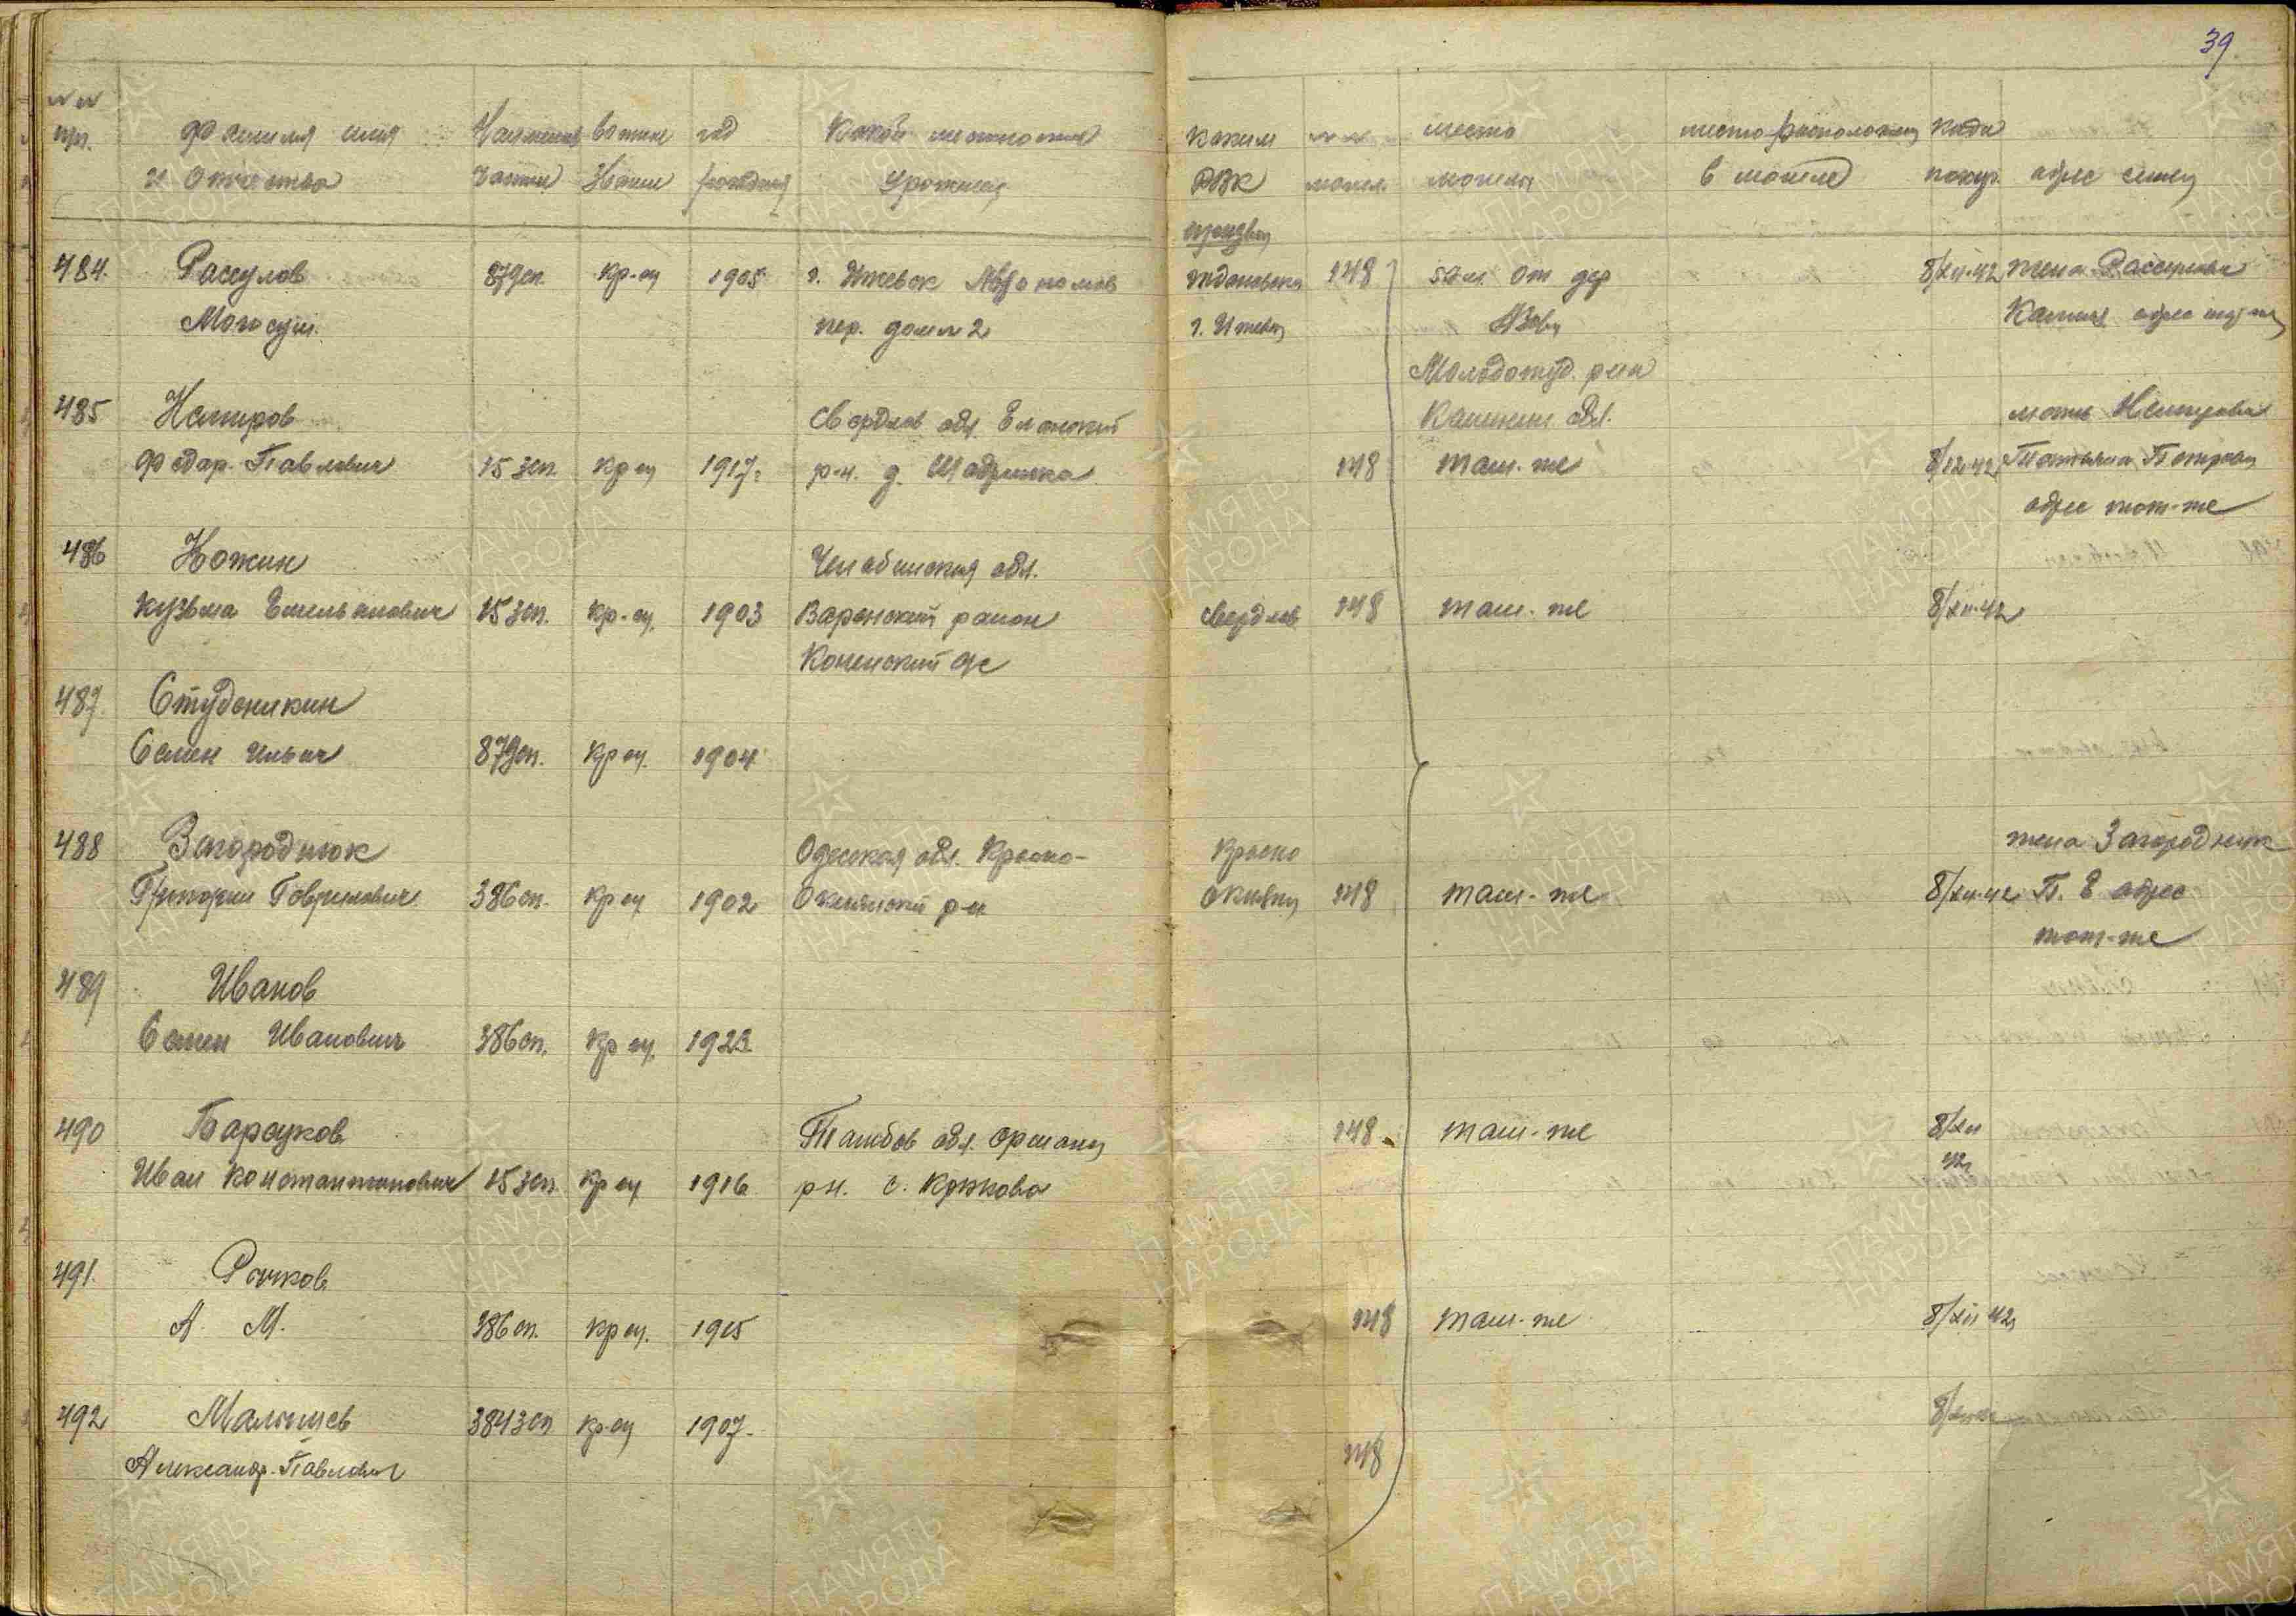 39
№ №
пп.
Фамилия имя
и Отчество
Наименов
части
воинск
звание
год
рождения
Какой местности
урожен
каким
РВК
призван
№ №
могил
место
могилы
место расположен
в могиле
когда
похор.
адрес семьи
484. Рассулов 87 зсп. Кр-ец 1905 г. Ижевск Автономов Ждановска 148 5 км. от дер 8/XII-42 жена Рассулова
пер. дом № 2 г. Ижевск Азовы адрес
Молодотуд. р-на
485 Немиров Свердлов обл. Еланский Калинин обл. мать Немирова
Федар. Павлович 15 зсп. Кр ец 1917. р-н. д. Шадринка 148 там-же 8/12-42 Татьяна Петровн
адрес тот-же
486 Кожин Челябинская обл.
Кузьма Емельянович 15 зсп. Кр-ец. 1903 Варенский район Свердлов 148 там-же 8/XII-42
Коненский с/с
487. Студеникин
Семен Ильич 87 зсп. Кр ец. 1904
488 Загороднюк Одесская обл. Красно- Красно жена Загороднюк
Григории Гаврилович 386 сп. Кр ец 1902 Окнянский р-н Окнянск 148 там-же 8/XII-42 П. Е адрес
тот-же
489 Иванов
Семен Иванович 386 сп. Кр ец. 1923
490 Барсуков Тамбов обл. 148 там-же 8/XII
Иван Константинович 15 зсп. Кр ец 1916 рн. с. Крюково 42
491. Рычков
А. М. 386 сп. Кр ец. 1915 148 там-же 8/XII 42
492 Малышев 384 зсп Кр-ец 1907. 8/XII
Александр. Павлович 148
ПАМЯТЬ
НАРОДА